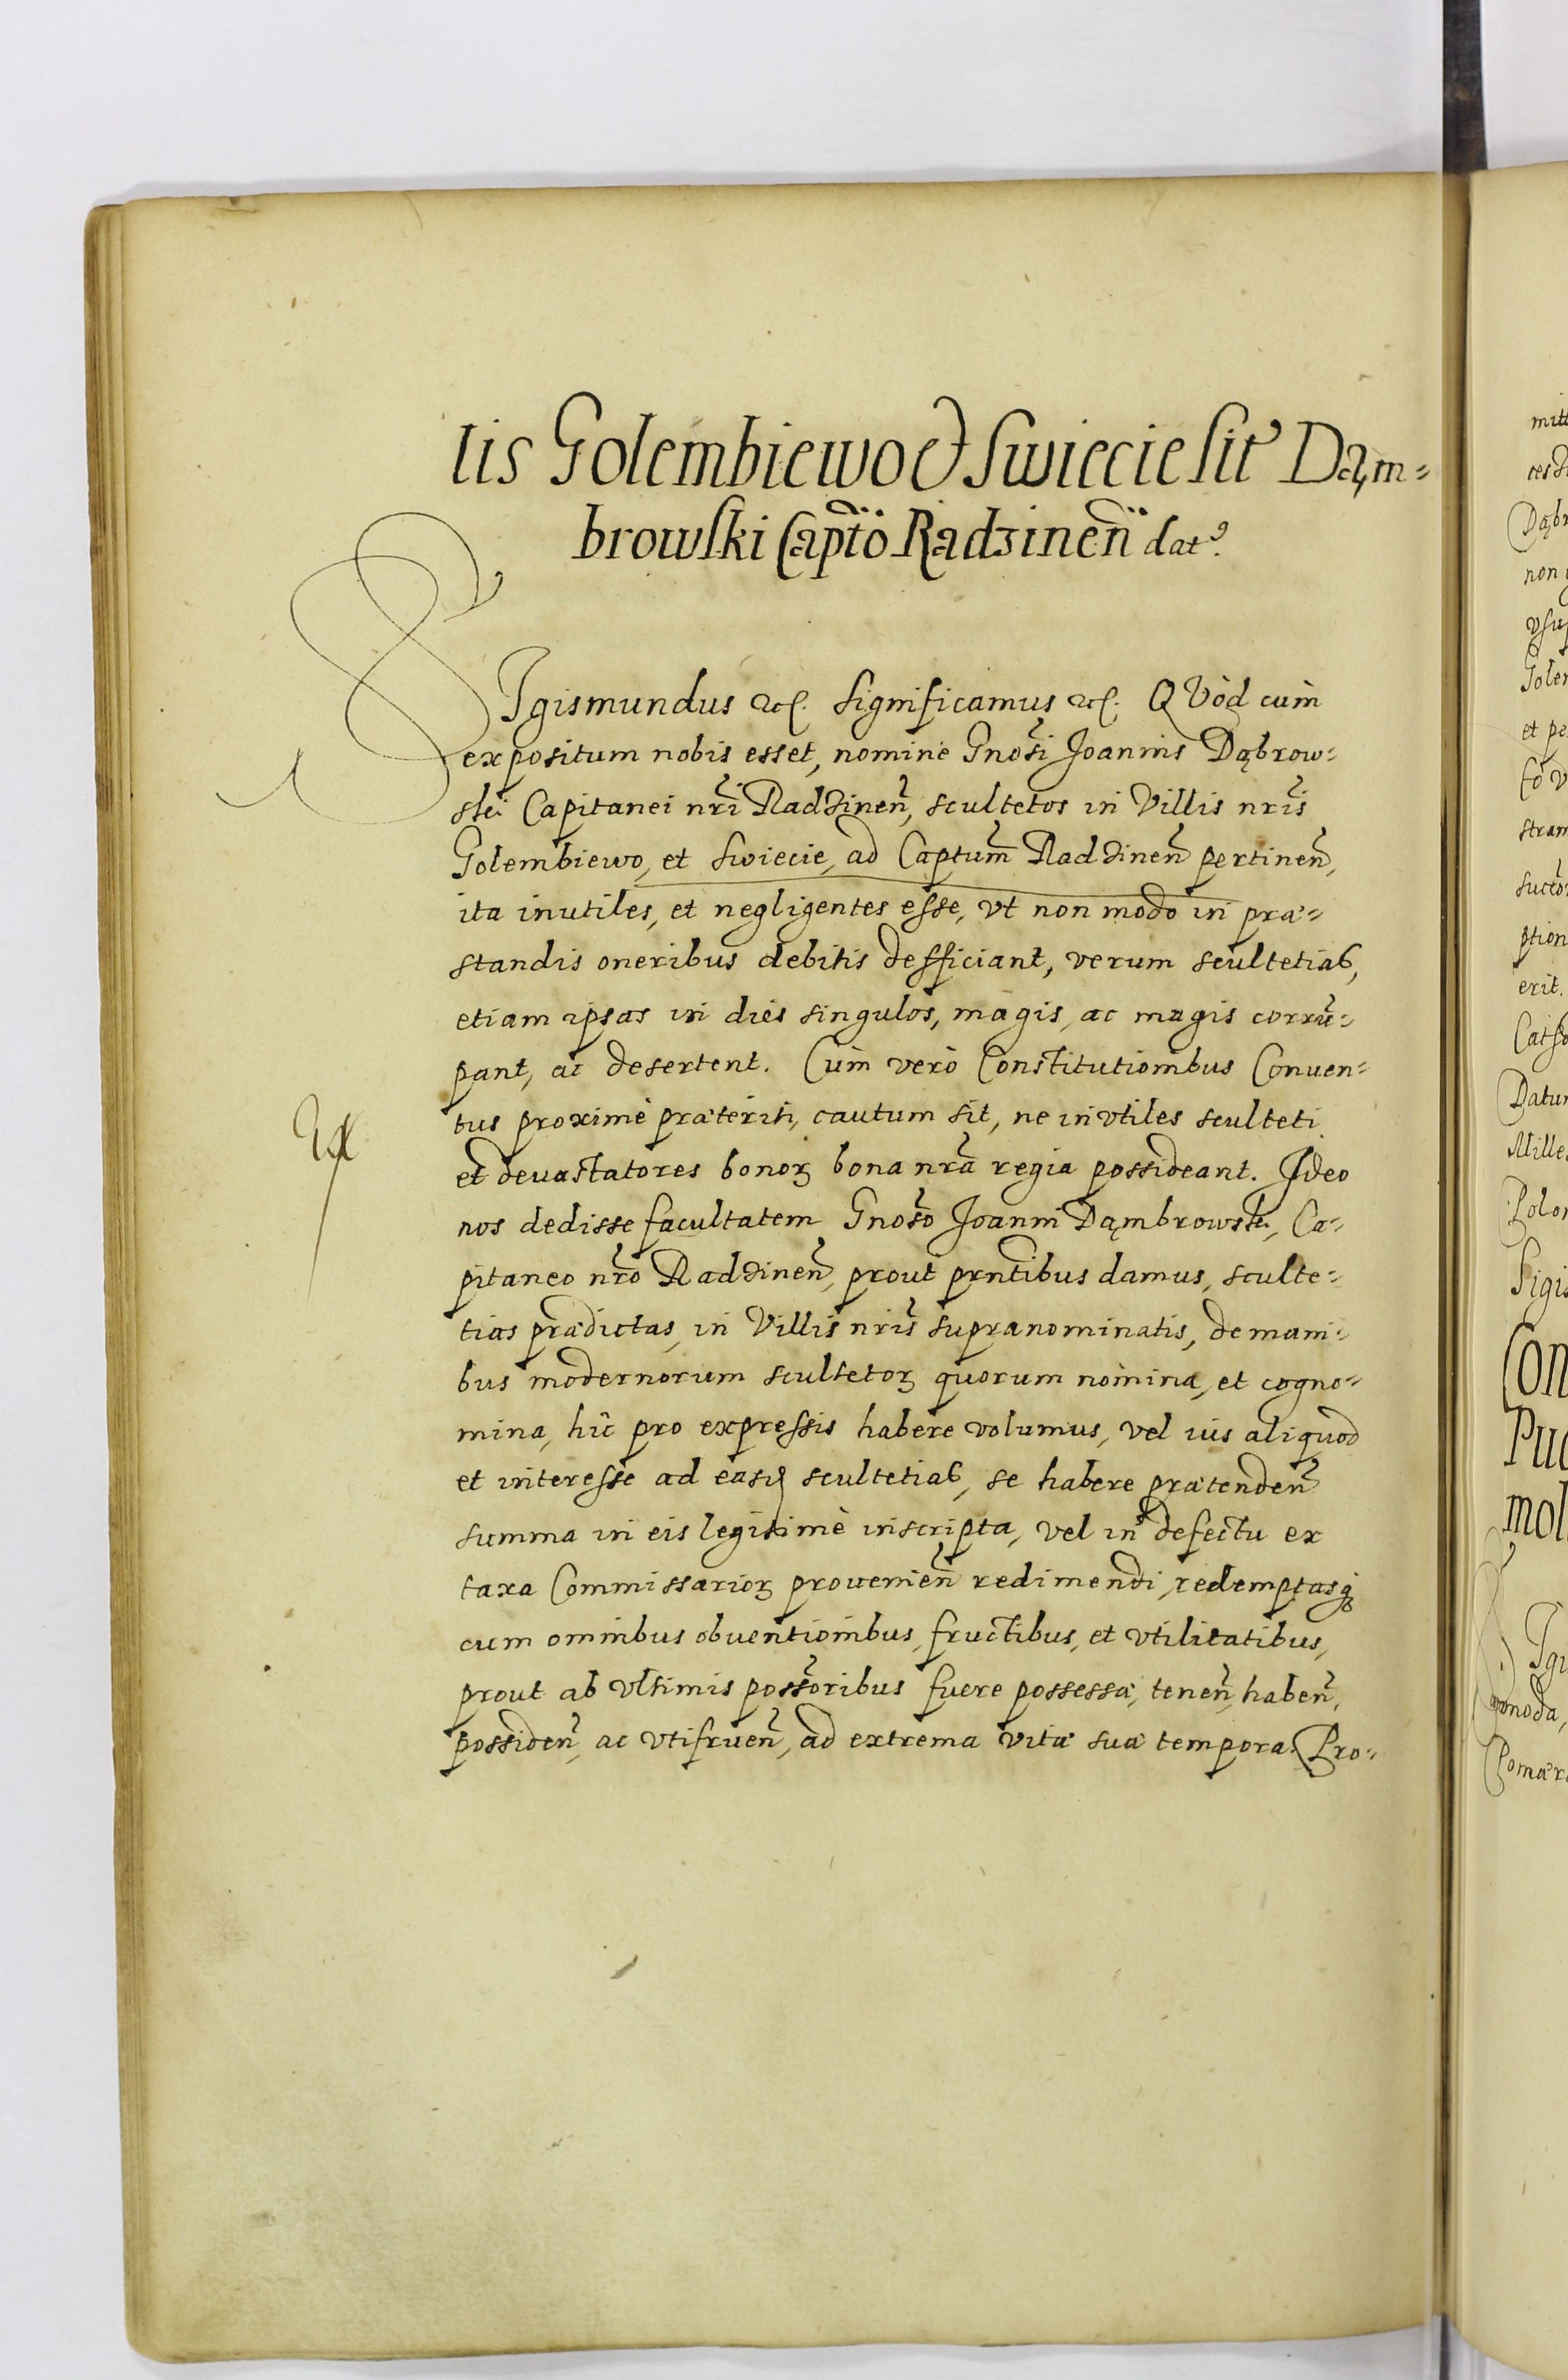 lis Golembiewo & Swiecie sit Dąm=
browski Capto Radzinen dat9.
SIgismundus etc. Significamus etc. QVòd cum
expositum nobis esset, nomine Gnosi Joannis Dąbrow=
ski Capitanei nri Radzinen, scultetos in Villis nris
Golembiewo, et Swiecie, ad Captum Radzinen pertinen,
ita inutiles, et negligentes esse, vt non modo in præ=
standis oneribus debitis defficiant, verum scultetias,
etiam ipsas in dies singulos, magis, ac magis corrũ=
pant, ac desertent. Cùm verò Constitutionibus Conuen=
tus proximè præteriti, cautum sit, ne invtiles sculteti
et deuastatores bonoꝝ bona nrã regia possideant. Ideo
nos dedisse facultatem Gnoso Joanni Dąmbrowski, Ca=
pitaneo nro Radzinen, prout prntibus damus, sculte=
tias prædictas, in Villis nris supranominatis, de mani=
bus modernorum scultetoꝝ quorum nomina, et cogno=
mina, hîc pro expressis habere volumus, vel ius aliquod
et interesse ad easd scultetias, se habere prætenden
summa in eis legitimè inscripta, vel in defectu ex
taxa Commissarioꝝ prouenien redimendi, redemptasq3
cum omnibus obuentionibus, fructibus, et vtilitatibus,
prout ab vltimis possoribus fuere possessæ, tenen, haben,
possiden, ac vtifruen, ad extrema vitæ suæ tempora. Pro=
mitt
Dąbr
non
vsu
Goler
et pe
Co V
stram
sucēo
ption
erit.
Datu
Mille
Polo
Sigis
Con
Puc
mol
moda,
Pomær